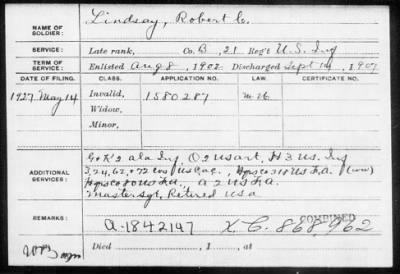 NAME OF SOLDIER: Lindsay, Robert C.
SERVICE: Late rank, Co. B, 21 Reg't U.S. Inf
TERM OF SERVICE: Enlisted Aug 8, 1902 Discharged Sept 14, 1907
DATE OF FILING. CLASS. APPLICATION NO. LAW. CERTIFICATE NO.
1927 May 14 Invalid, 1580287 26
Widow,
Minor,
G & K 2 ala Inf, O 2 us art, H 3 us. Inf
ADDITIONAL SERVICES: 3, 24, 62, & 72 cos us C.a.C., 310 us F.A. (ww)
A 2 us F.A.
master sgt, Retired usa
REMARKS: A-1842197 X C. 868,962
COMBINED
Died , 1 , at